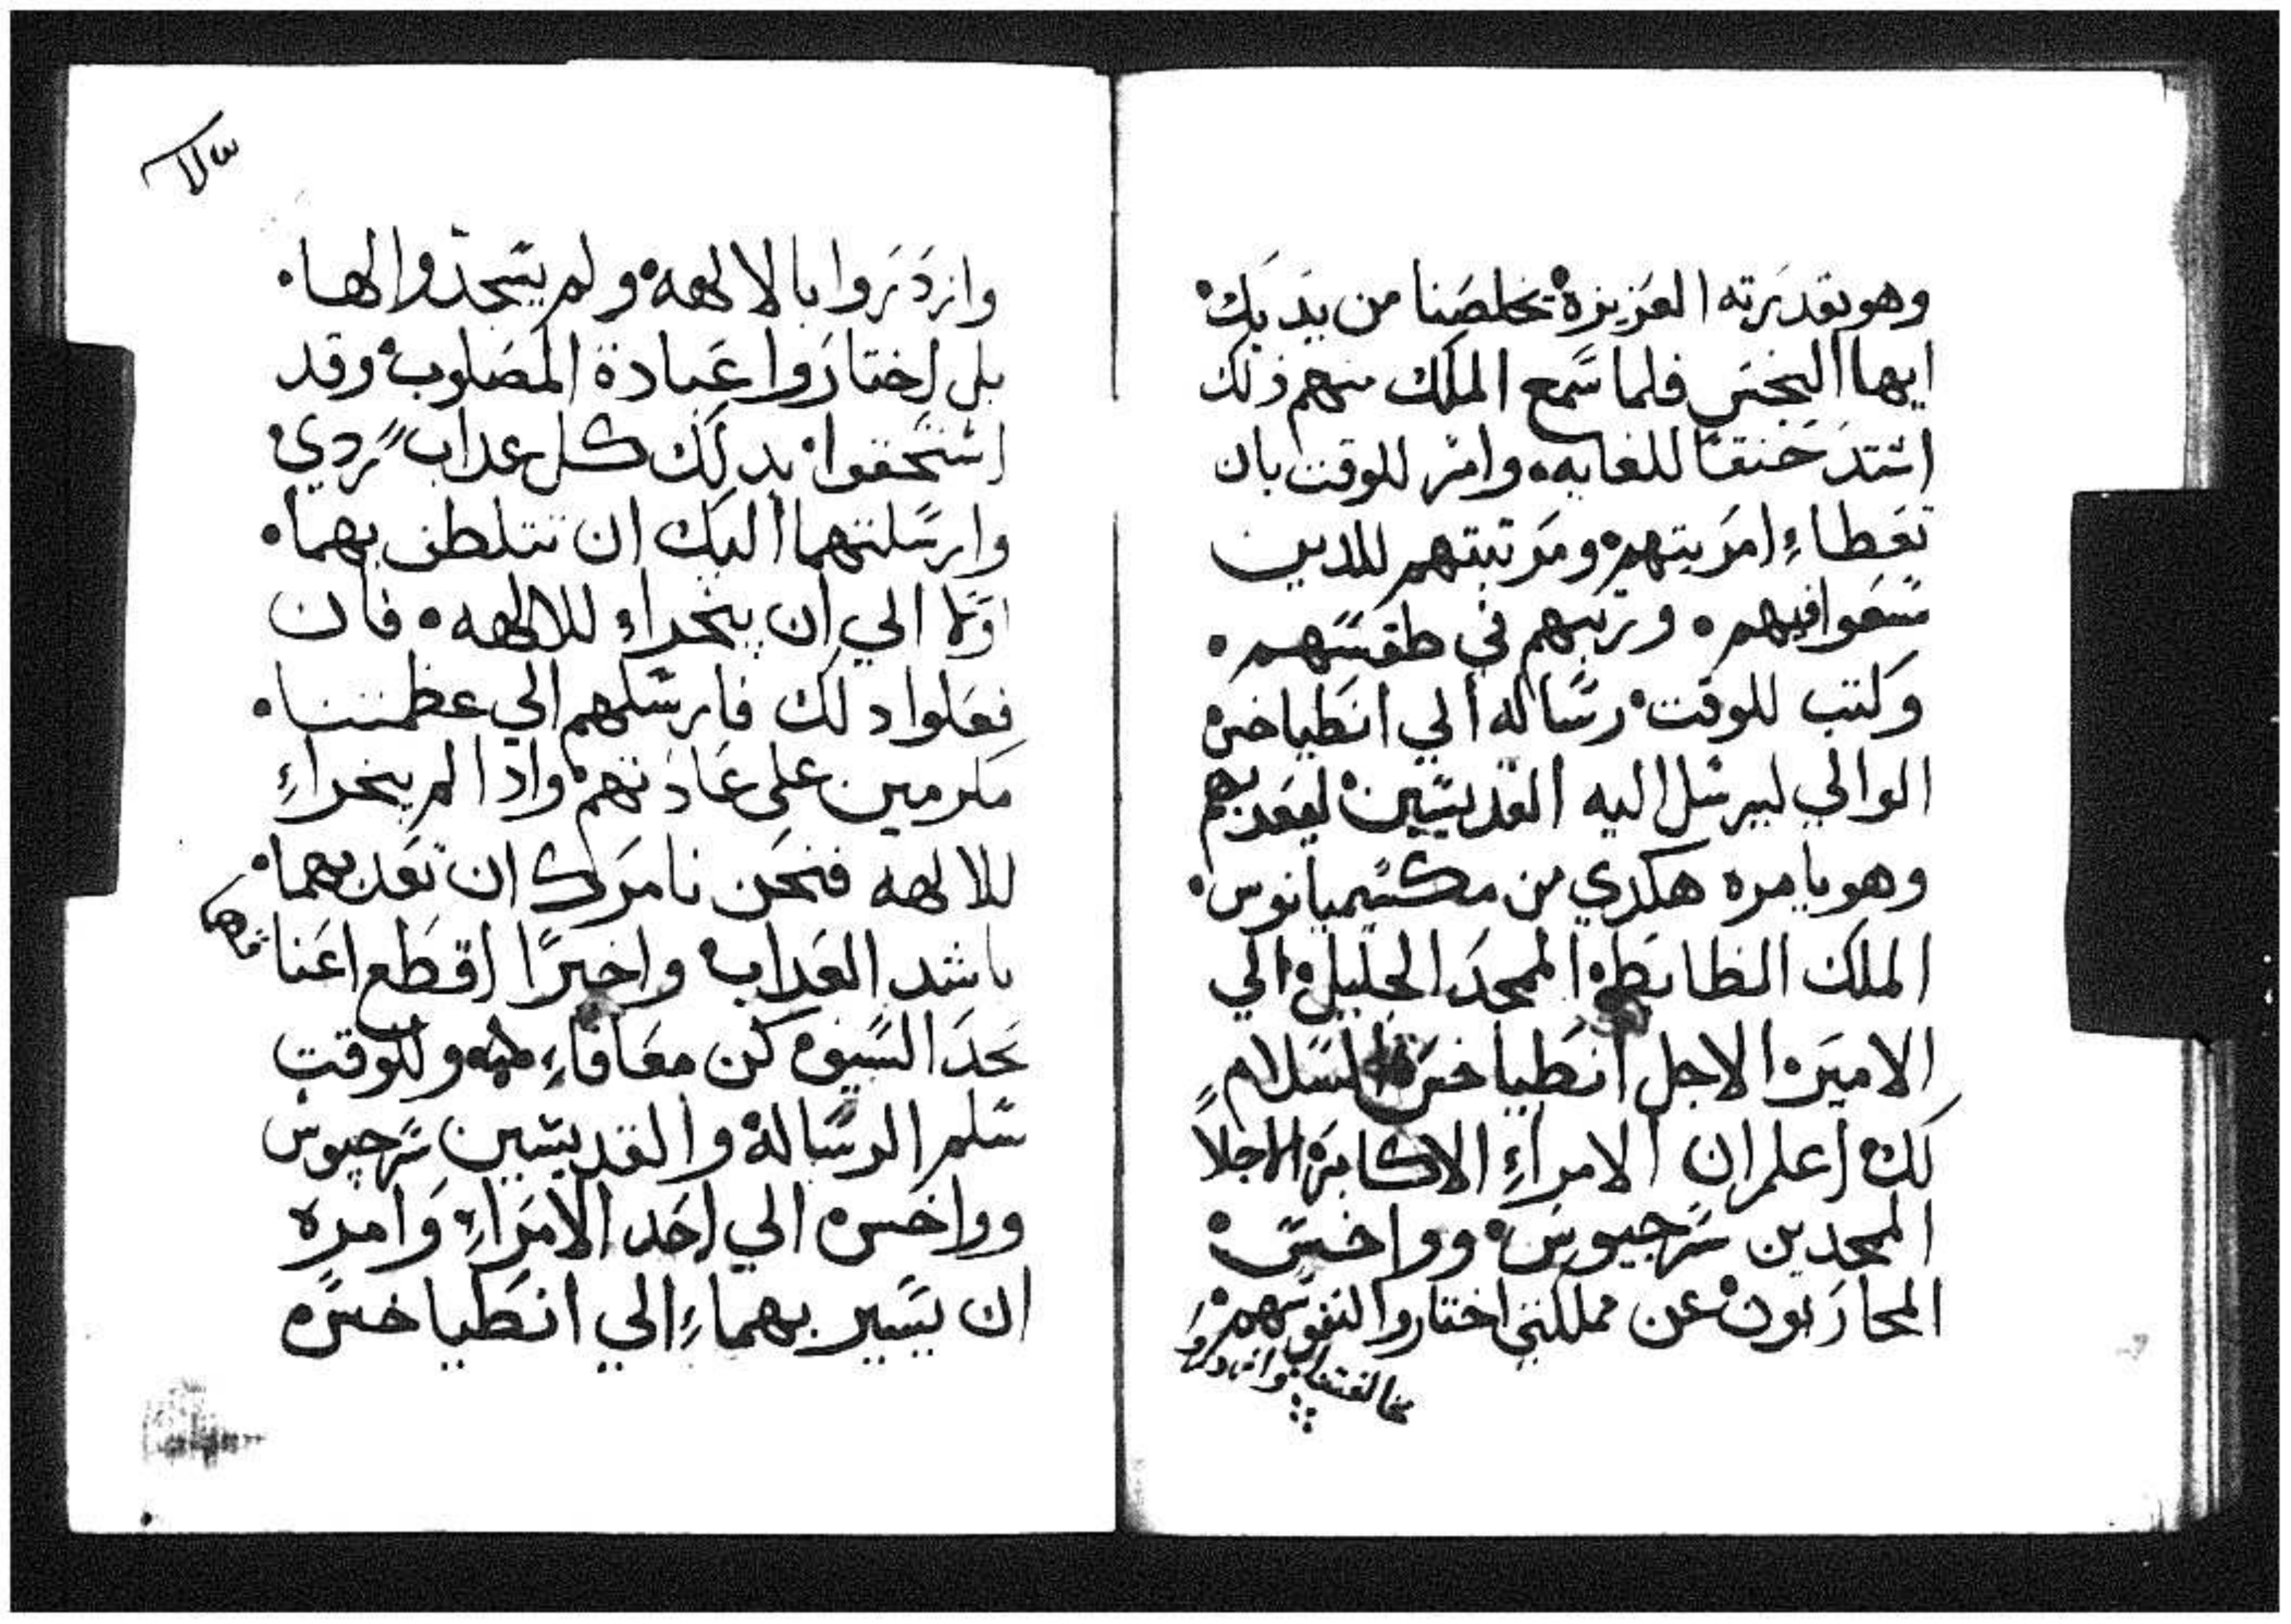 وهو بقدرته العزيزة يخلصنا من يديك
ايها النجس فلما سمع الملك منهم ذلك
اشتد حنقا للغايه وامر للوقت بان
تعطاء امريتهم ومرتبتهم للدين
سعوا فيهم ورتبهم في طقسهم
وكتب للوقت رساله الي انطياخس
الوالي ليرسل اليه القديسين ليعدبهم
وهو يامره هكدي من مكسيميانوس
الملك الظابط الممجد الجليل الي
الامير الاجل انطياخس السلام
لك اعلم ان الامراء الاكابر الاجلا
الممجدين سرجيوس وواخس
المحاربون عن مملكتي اختاروا لنفوسهم
مخالفتنا وازدروا
وازدروا بالالهه ولم يتخدوا الها
بل اختاروا عبادة المصلوب وقد
استحقوا بدلك كل عداب ردي
وارسلتهما اليك ان تتلطف بهما
اولا الي ان ينحراء للالهه فان
فعلوا دلك فارسلهم الي عظمتنا
مكرمين على عادتهم وادا لم ينحراء
للالهه فنحن نامرك ان تعدبهما
باشد العداب واخيرا اقطع اعنا
قهما
بحد السيف كن معافاء وللوقت
سلم الرسالة والقديسين سرجيوس
وواخس الي احد الامراء وامره
ان يسير بهماء الي انطياخس